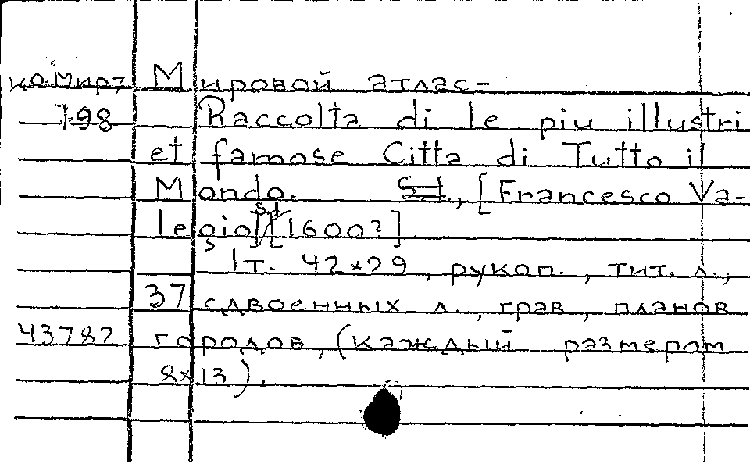 Мировой атлас-
198 Raccolta di le piu illustri
et famose Citta di Tutto il
Mondo. S.l., [Francesco Va-
legio] [1600?]
1т. 42x29, рукоп., тит. л.,
37 сдвоенных л., грав., планов
43787 городов, (каждый размером
8x13).